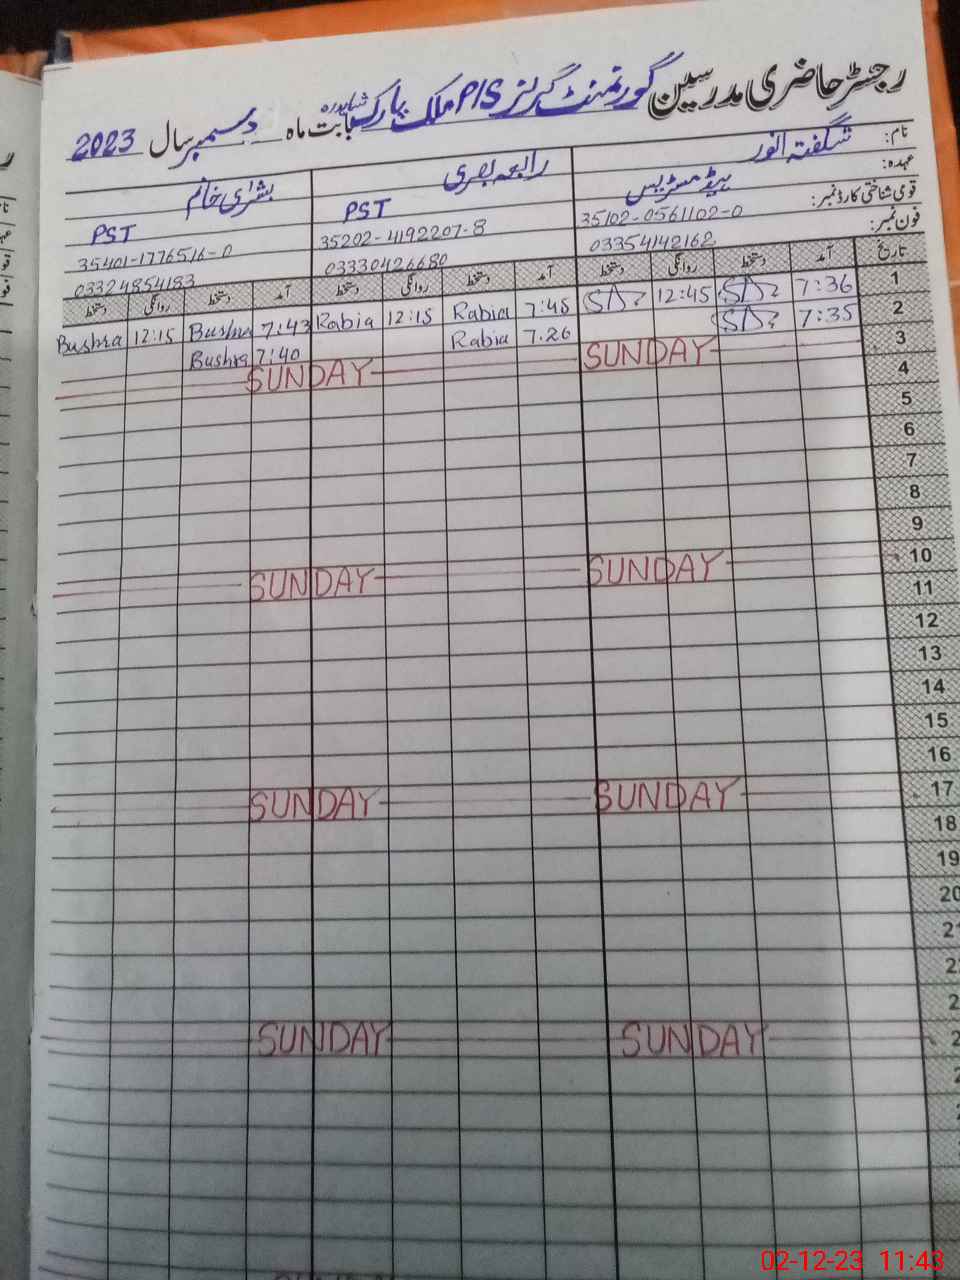 رجسٹر حاضری مدرسین گورنمنٹ گرلز P/S ملک پارک شاہدرہ بابت ماہ دسمبر سال 2023
نام: شگفتہ انور رابعہ بصری بشریٰ خانم
عہدہ: ہیڈ مسٹریس PST PST
قومی شناختی کارڈ نمبر: 35102-0561102-0 35202-4192207-8 35401-1776516-0
فون نمبر: 03354142162 03330426680 03324854183
تاریخ آمد دستخط روانگی دستخط آمد دستخط روانگی دستخط آمد دستخط روانگی دستخط
1 7:36 12:45 7:45 Rabia 12:15 Rabia 7:43 Bushra 12:15 Bushra
2 7:35 7.26 Rabia 7:40 Bushra
3 SUNDAY SUNDAY
4
5
6
7
8
9
10 SUNDAY SUNDAY
11
12
13
14
15
16
17 SUNDAY SUNDAY
18
19
20
SUNDAY SUNDAY
02-12-23 11:43